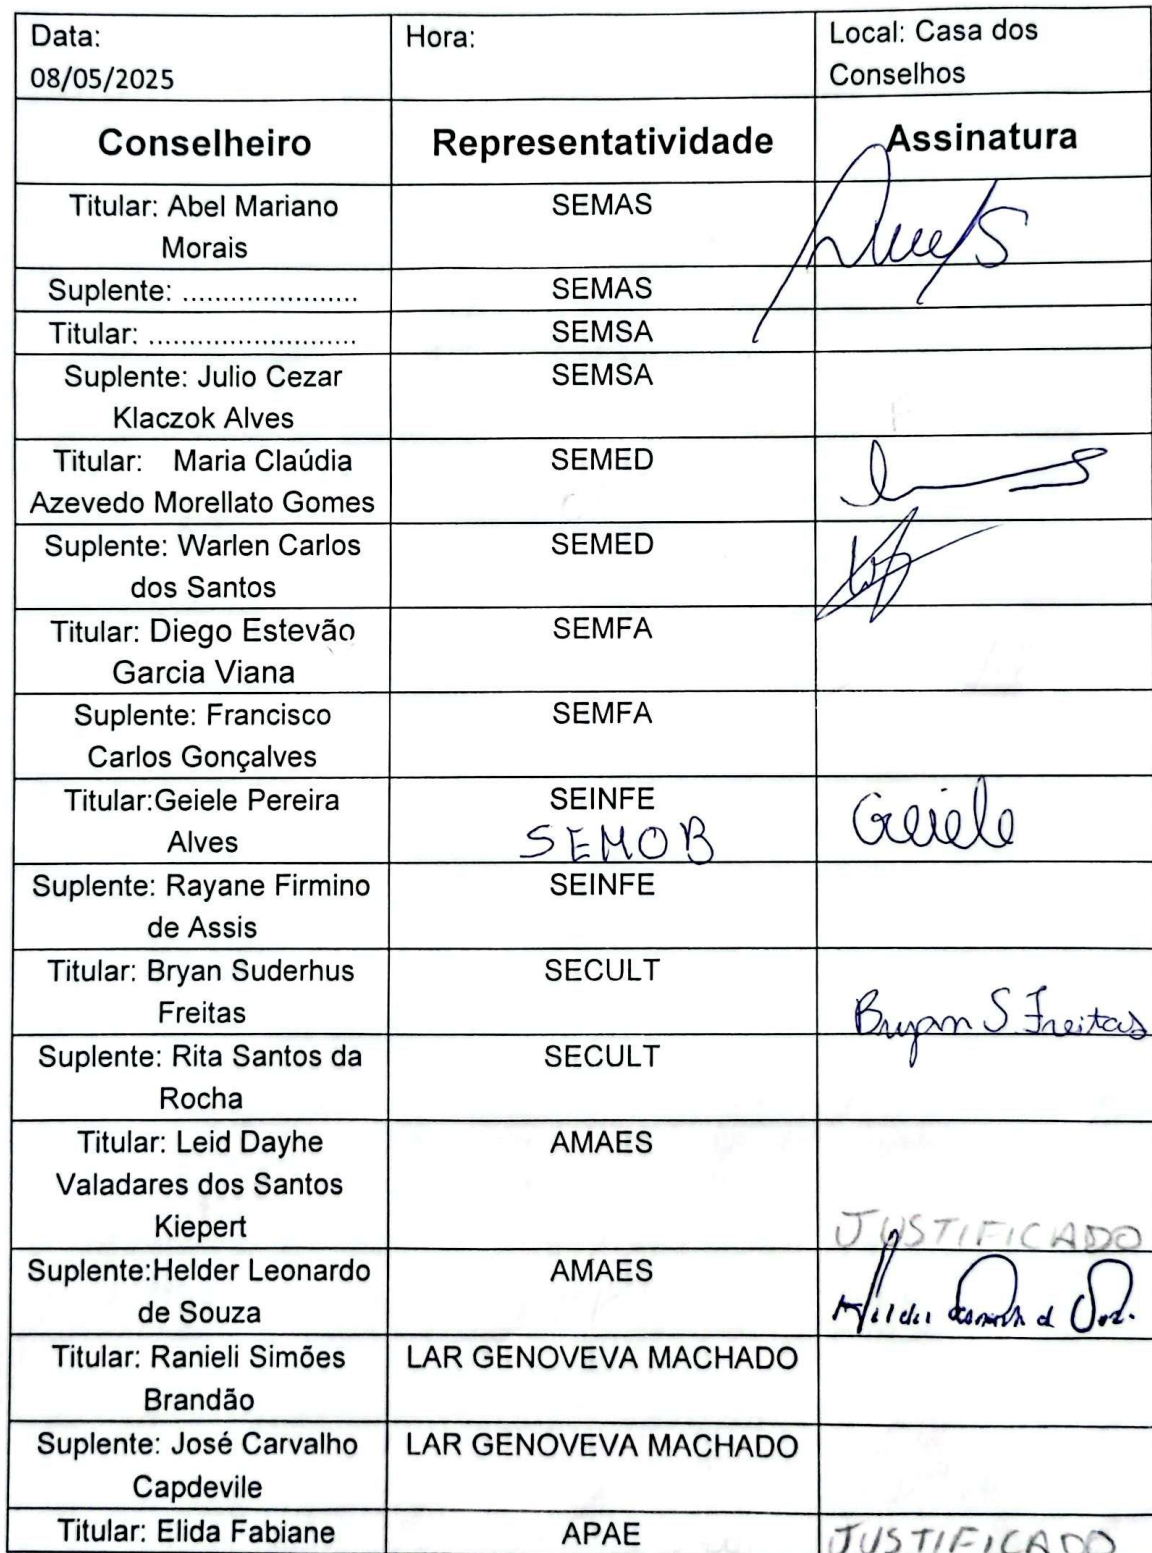 Data:
08/05/2025
Hora:
Local: Casa dos
Conselhos
Conselheiro
Representatividade
Assinatura
Titular: Abel Mariano
Morais
SEMAS
Suplente: ......................
SEMAS
Titular: ..........................
SEMSA
Suplente: Julio Cezar
Klaczok Alves
SEMSA
Titular: Maria Claúdia
Azevedo Morellato Gomes
SEMED
Suplente: Warlen Carlos
dos Santos
SEMED
Titular: Diego Estevão
Garcia Viana
SEMFA
Suplente: Francisco
Carlos Gonçalves
SEMFA
Titular:Geiele Pereira
Alves
SEINFE
SEMOB
Geiele
Suplente: Rayane Firmino
de Assis
SEINFE
Titular: Bryan Suderhus
Freitas
SECULT
Bryan S Freitas
Suplente: Rita Santos da
Rocha
SECULT
Titular: Leid Dayhe
Valadares dos Santos
Kiepert
AMAES
JUSTIFICADO
Suplente:Helder Leonardo
de Souza
AMAES
Titular: Ranieli Simões
Brandão
LAR GENOVEVA MACHADO
Suplente: José Carvalho
Capdevile
LAR GENOVEVA MACHADO
Titular: Elida Fabiane
APAE
JUSTIFICADO